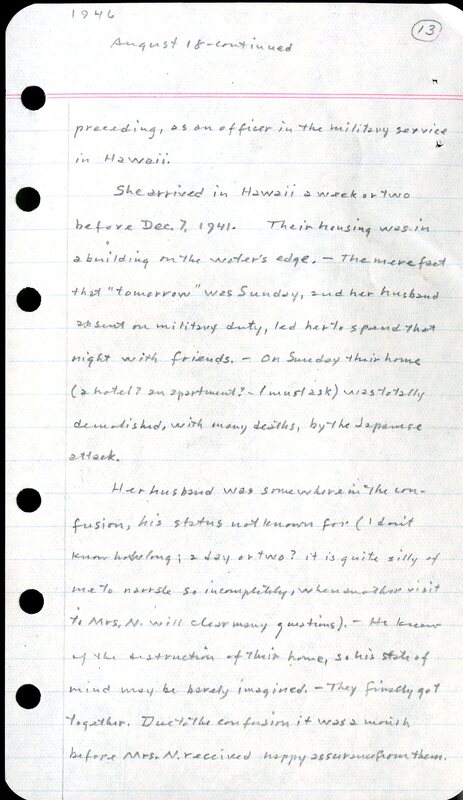 1946
13
August 18-continued
preceding, as an officer in the military service
in Hawaii.
She arrived in Hawaii a week or two
before Dec. 7, 1941. Their housing was in
a building on the water's edge. — The mere fact
that "tomorrow" was Sunday, and her husband
absent on military duty, led her to spend that
night with friends. — On Sunday their home
(a hotel? an apartment? - I must ask) was totally
demolished, with many deaths, by the Japanese
attack.
Her husband was somewhere in the con-
fusion, his status not known for (I don't
know how long; a day or two? it is quite silly of
me to narrate so incompletely, when another visit
to Mrs. N. will clear many questions). — He knew
of the destruction of their home, so his state of
mind may be barely imagined. — They finally got
together. Due to the confusion it was a month
before Mrs. N. received happy assurance from them.